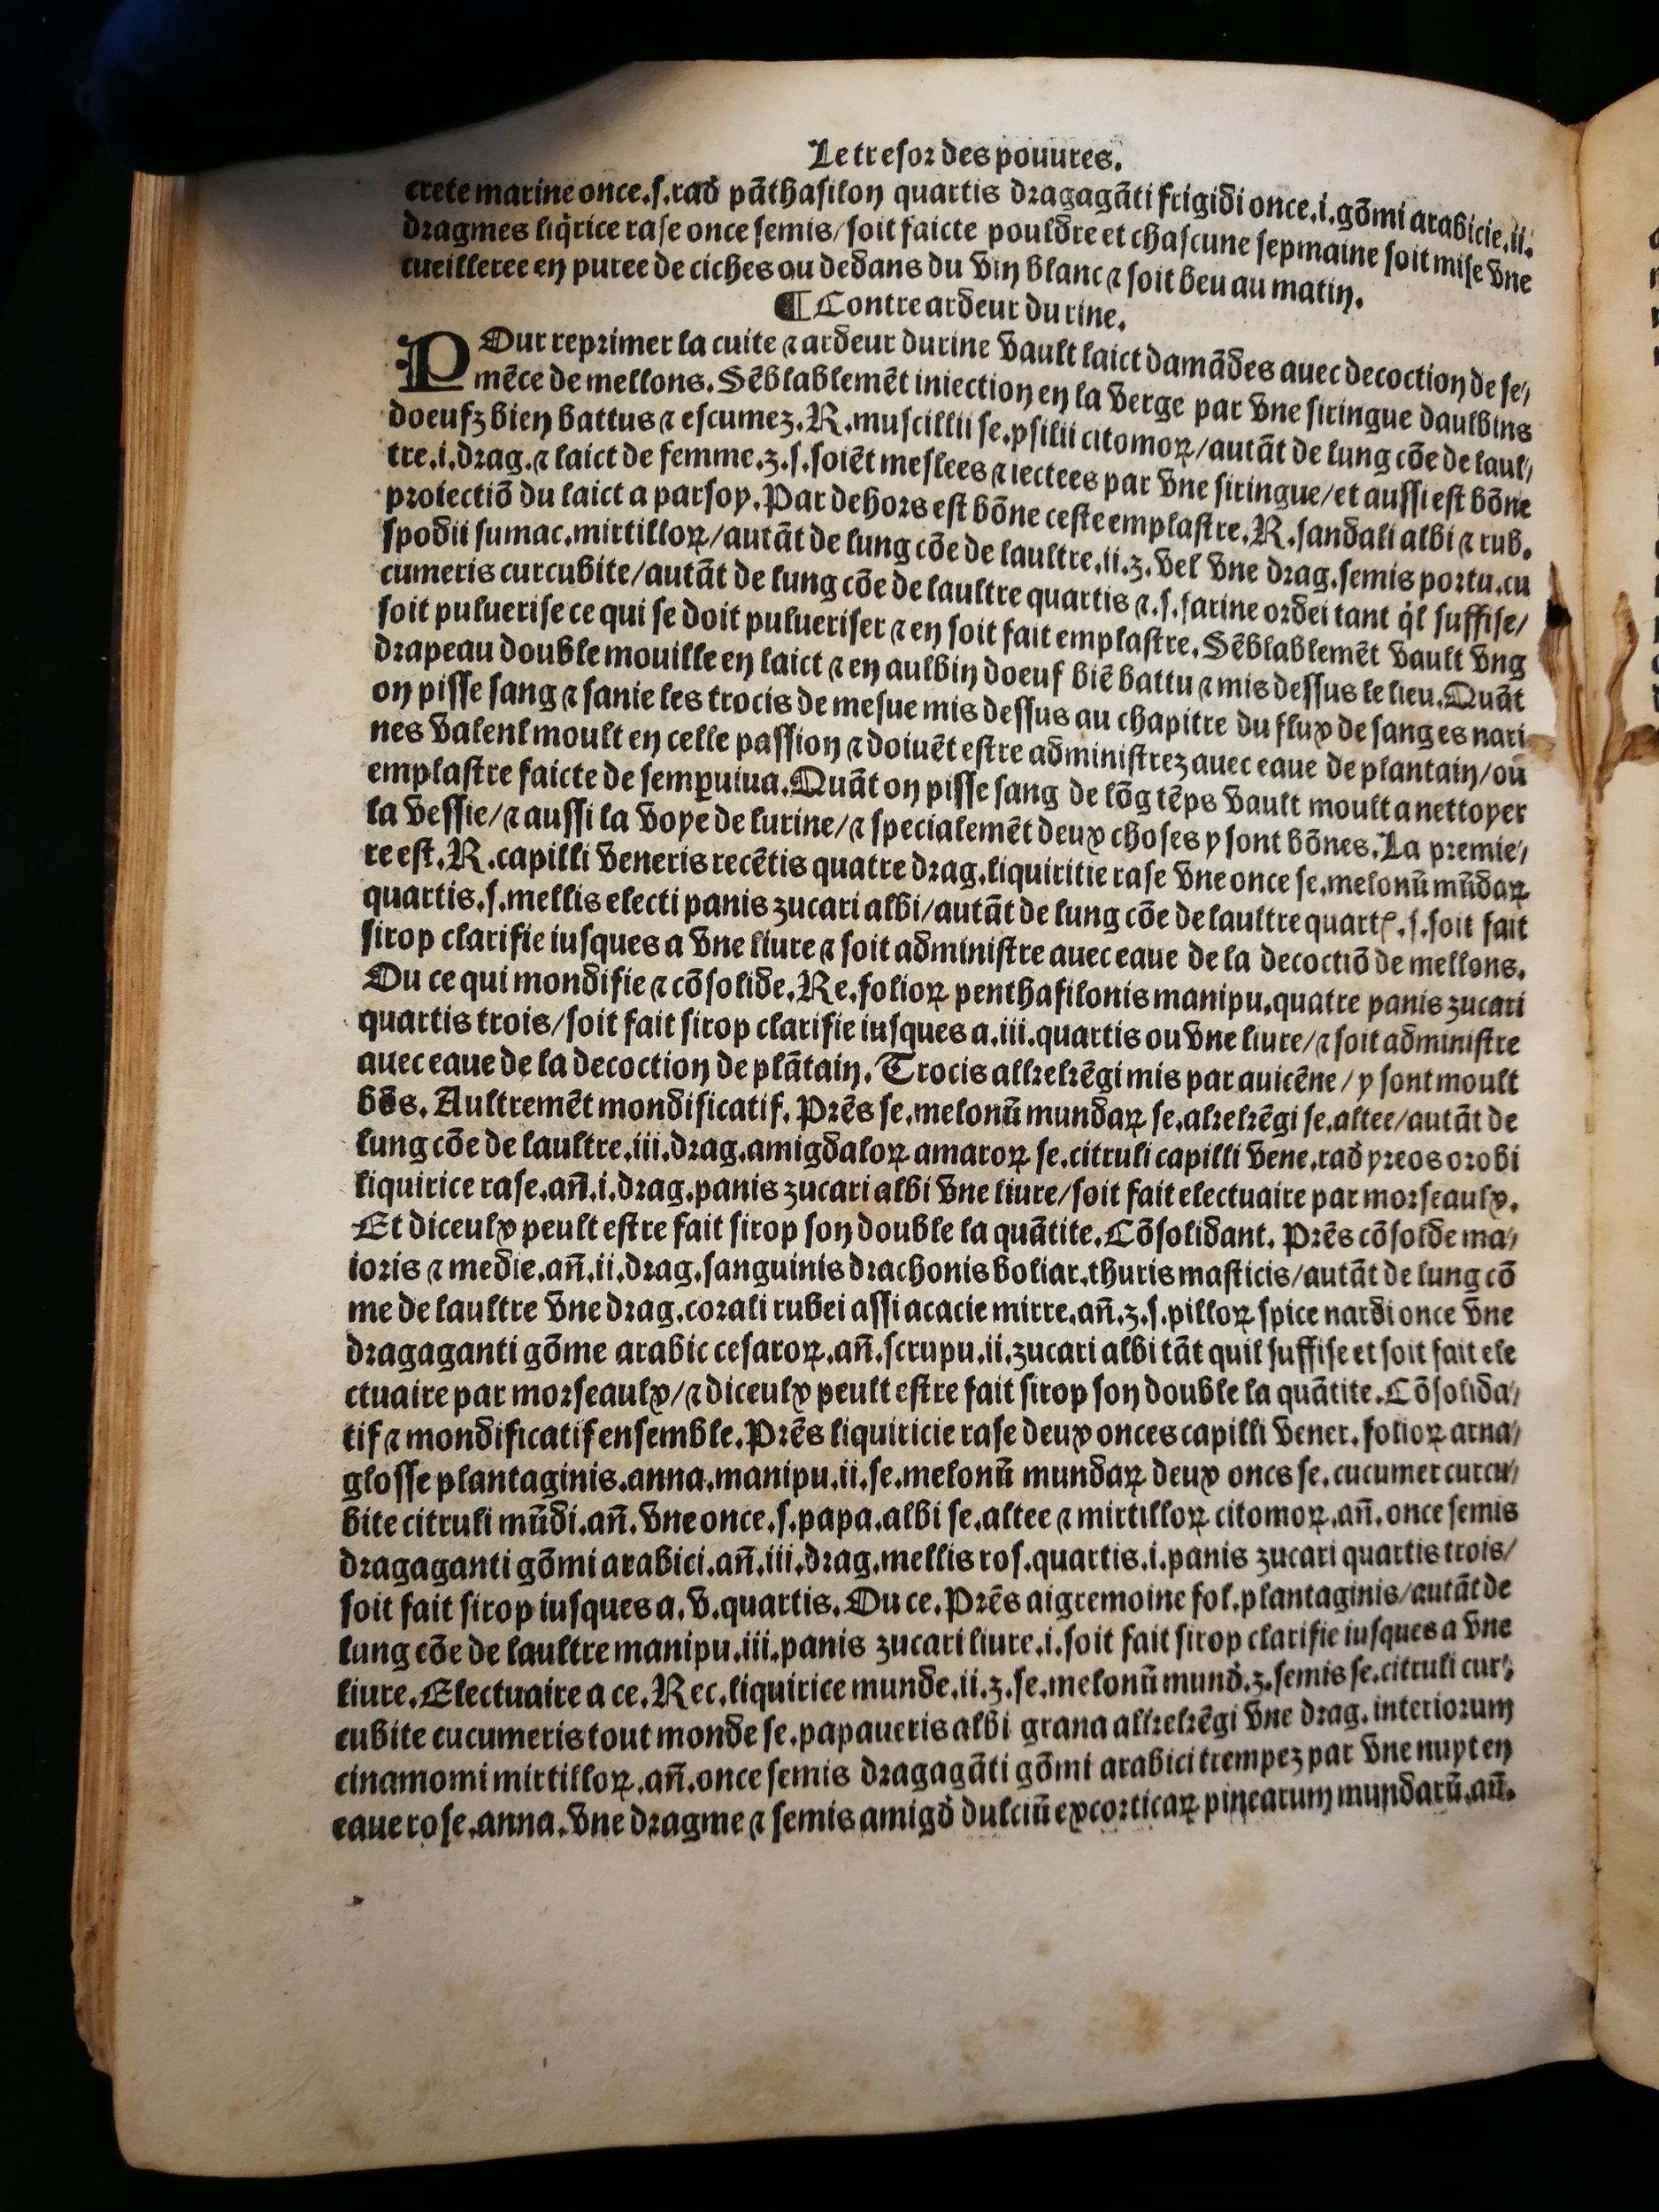 Le tresor des pouures.
crete marine once.s.rad̛ pāthafilon quartis dragagāti frigidi once.i.gōmi arabicie.ii.
dragmes liq̛rice rase once semis/soit faicte pouldre et chascune sepmaine soit mise vne
cueilleree en puree de ciches ou dedans du vin blanc ⁊ soit beu au matin.
¶ Contre ardeur durine.
POur reprimer la cuite ⁊ ardeur durine vault laict damādes auec decoction de se/
mēce de mellons. Sēblablemēt iniection en la verge par vne siringue daulbins
doeufz bien battus ⁊ escumez. R. muscillii se.psilii citomoꝝ/autāt de lung cōe de laul/
tre.i.drag.⁊ laict de femme.ʒ.s.soiēt meslees ⁊ iectees par vne siringue/et aussi est bōne
proiectiō du laict a par soy. Par dehors est bōne ceste emplastre. R. sandali albi ⁊ rub.
spodii sumac.mirtilloꝝ/autāt de lung cōe de laultre.ii.ʒ. vel vne drag.semis portu.cu
cumeris curcubite/autāt de lung cōe de laultre quartis ⁊.s.farine ordei tant q̛l suffise/
soit puluerise ce qui se doit pulueriser ⁊ en soit fait emplastre. Sēblablemēt vault vng
drapeau double mouille en laict ⁊ en aulbin doeuf biē battu ⁊ mis dessus le lieu. Quāt
on pisse sang ⁊ sanie les trocis de mesue mis dessus au chapitre du flux de sang es nari
nes valenl moult en celle passion ⁊ doiuēt estre administrez auec eaue de plantain/ou
emplastre faicte de semꝑuiua. Quāt on pisse sang de lōg tēps vault moult a nettoyer
la vessie/⁊ aussi la voye de lurine/⁊ specialemēt deux choses y sont bōnes. La premie/
re est. R. capilli veneris recētis quatre drag.liquiritie rase vne once se.melonū mūdaꝝ
quartis.s.mellis electi panis zucari albi/autāt de lung cōe de laultre quartꝭ.s.soit fait
sirop clarifie iusques a vne liure ⁊ soit administre auec eaue de la decoctiō de mellons.
Ou ce qui mondifie ⁊ cōsolide. Re. folioꝝ penthafilonis manipu.quatre panis zucari
quartis trois/soit fait sirop clarifie iusques a.iii.quartis ou vne liure/⁊ soit administre
auec eaue de la decoction de plātain. Trocis alkekēgi mis par auicēne/y sont moult
bōs. Aultremēt mondificatif. Prēs se.melonū mundaꝝ se.alkekēgi se.altee/autāt de
lung cōe de laultre.iii.drag.amigdaloꝝ amaroꝝ se.citruli capilli vene.rad̛ yreos orobi
liquirice rase.añ.i.drag.panis zucari albi vne liure/soit fait electuaire par morseaulx.
Et diceulx peult estre fait sirop son double la quātite. Cōsolidant. Prēs cōsolde ma/
ioris ⁊ medie.añ.ii.drag.sanguinis drachonis boliar.thuris masticis/autāt de lung cō
me de laultre vne drag.corali rubei assi acacie mirre.añ.ʒ.s.pilloꝝ spice nardi once vne
dragaganti gōme arabic cesaroꝝ.añ.scrupu.ii.zucari albi tāt quil suffise et soit fait ele
ctuaire par morseaulx/⁊ diceulx peult estre fait sirop son double la quātite. Cōsolida/
tif ⁊ mondificatif ensemble. Prēs liquiricie rase deux onces capilli vener. folioꝝ arna/
glosse plantaginis.anna.manipu.ii.se.melonū mundaꝝ deux oncs se.cucumer curcu/
bite citruli mūdi.añ. vne once.s.papa.albi se.altee ⁊ mirtilloꝝ citomoꝝ.añ.once semis
dragaganti gōmi arabici.añ.iii.drag.mellis ros.quartis.i.panis zucari quartis trois/
soit fait sirop iusques a.v.quartis. Ou ce. Prēs aigremoine fol.plantaginis/autāt de
lung cōe de laultre manipu.iii.panis zucari liure.i.soit fait sirop clarifie iusques a vne
liure. Electuaire a ce. Rec.liquirice munde.ii.ʒ.se.melonū mund̛.ʒ.semis se.citruli cur/
cubite cucumeris tout monde se.papaueris albi grana alkekēgi vne drag.interiorum
cinamomi mirtilloꝝ.añ.once semis dragagāti gōmi arabici trempez par vne nuyt en
eaue rose.anna.vne dragme ⁊ semis amigd̛ dulciū excorticaꝝ pinearum mundarū.añ.